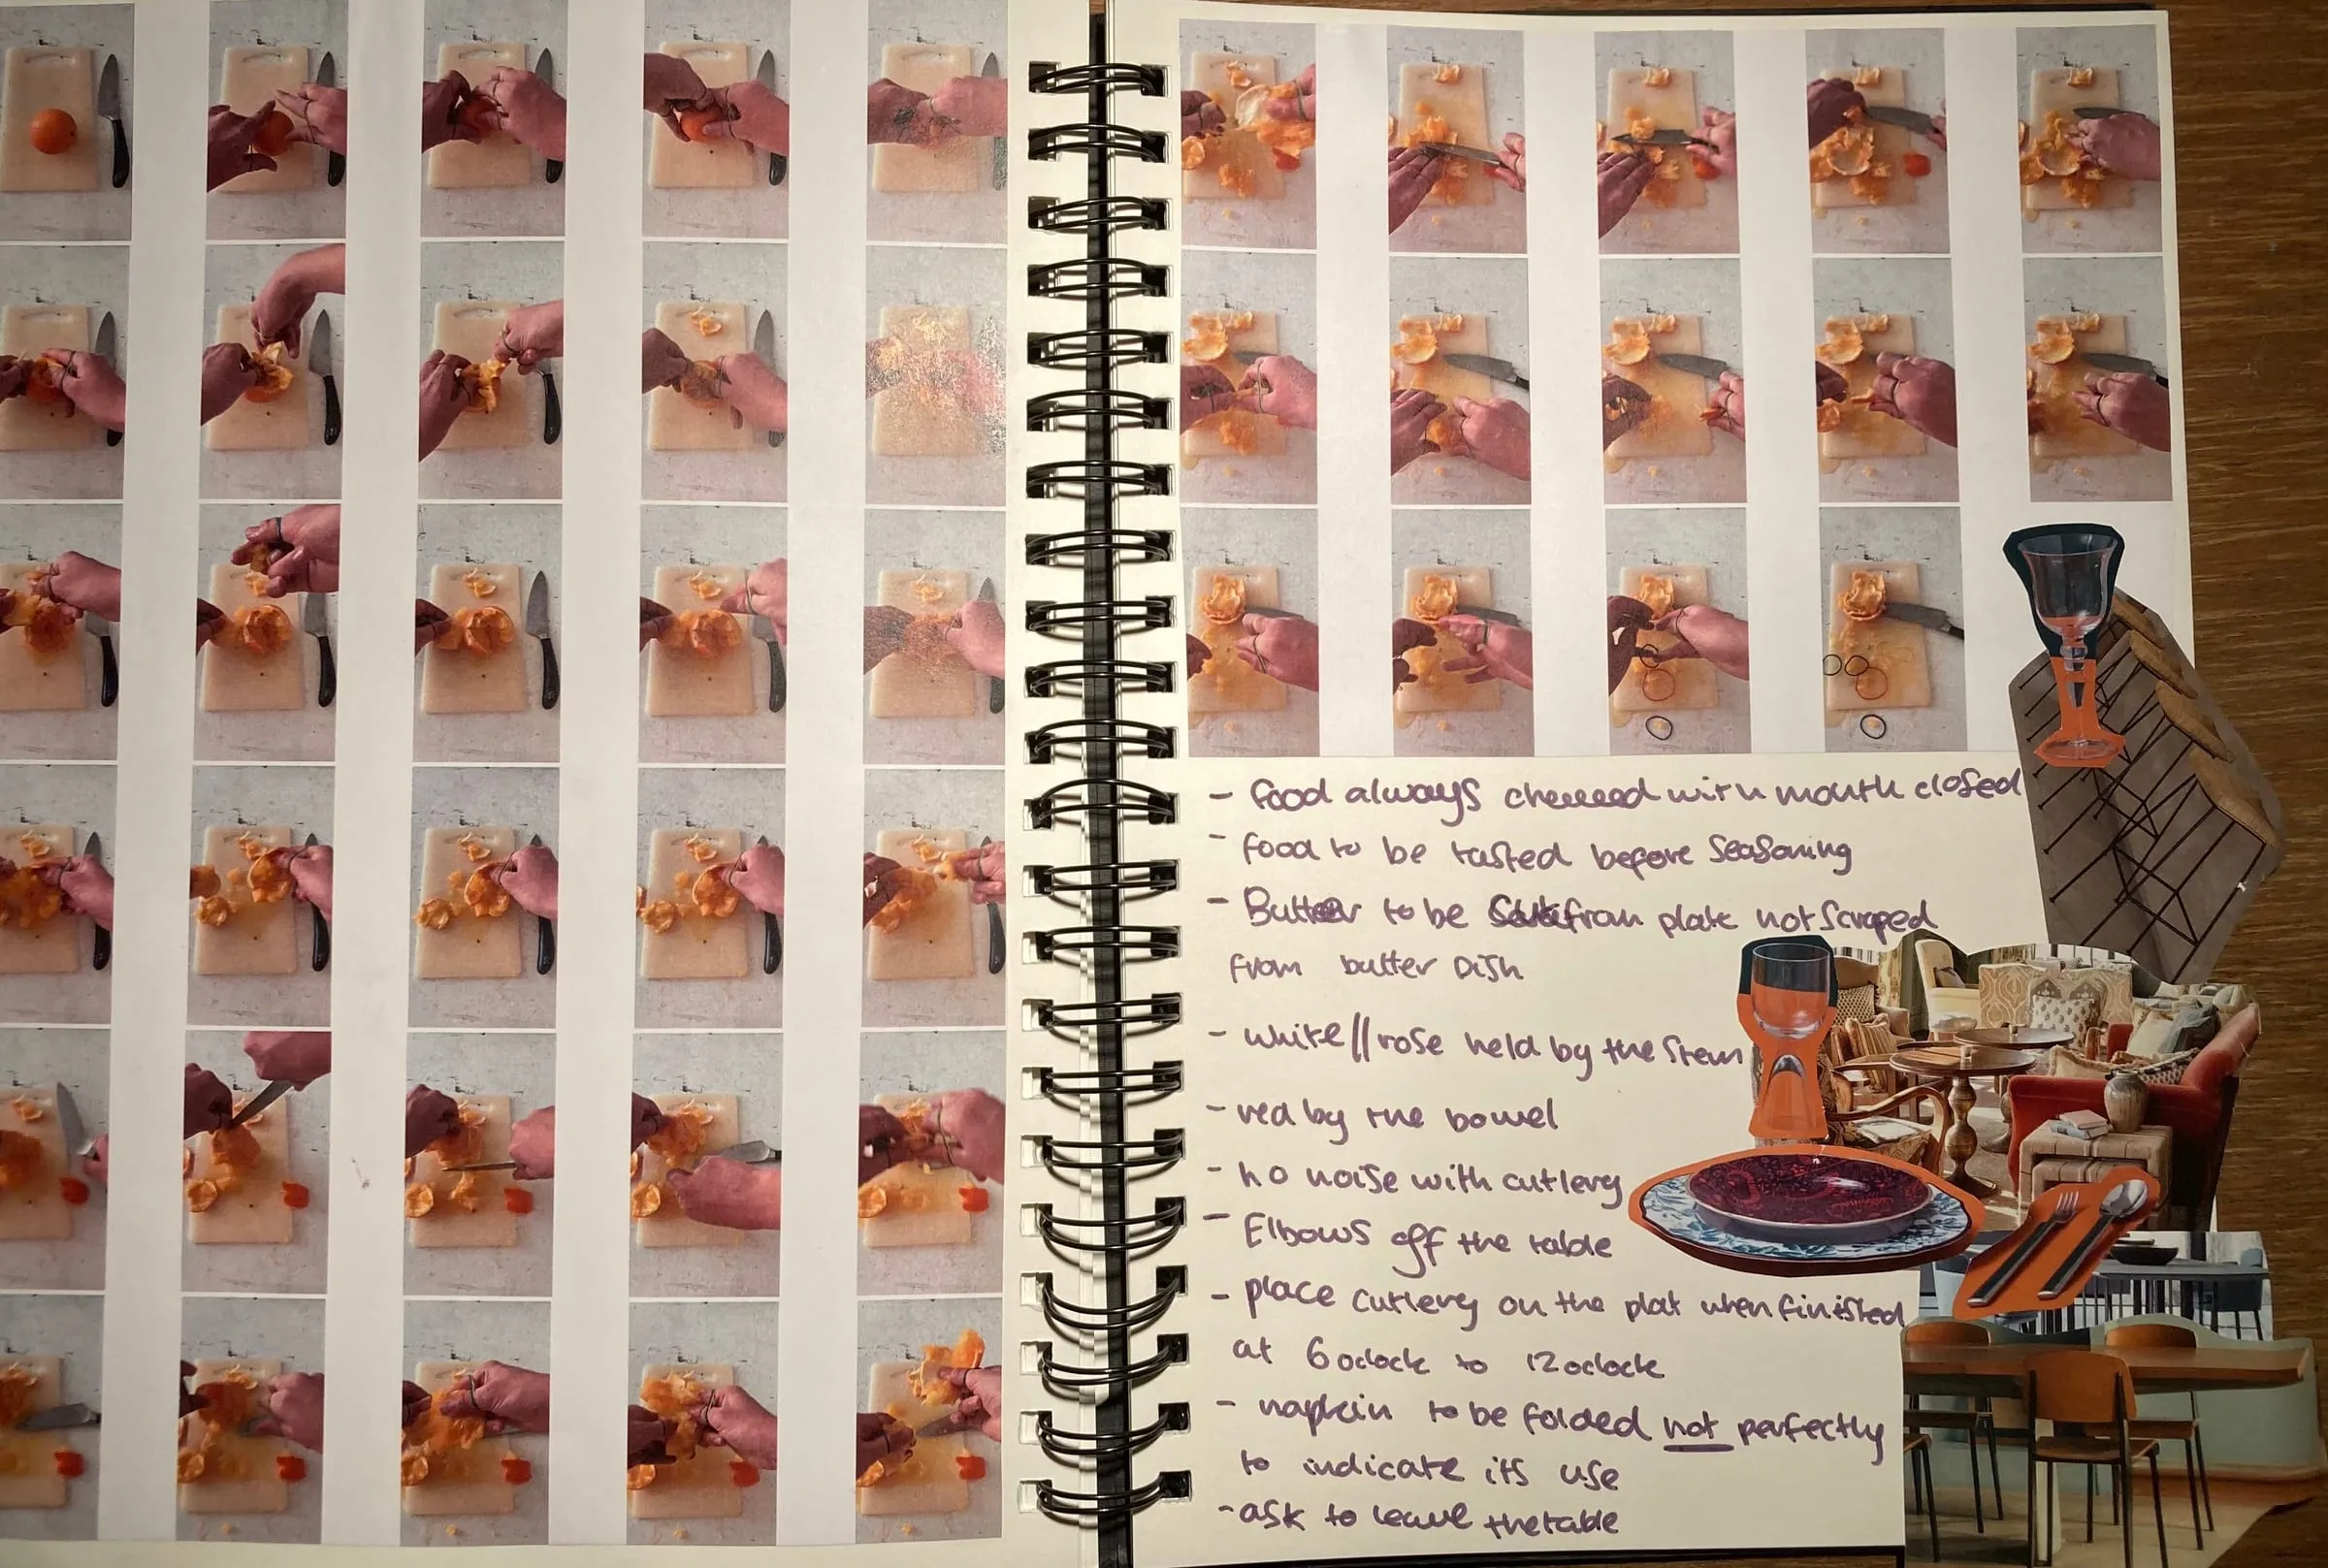 - food always cheweed with mouth closed
- food to be tasted before seasoning
- Butter to be from plate not scraped
from butter Dish
- white//rose held by the stem
- red by the bowel
- no noise with cutlery
- Elbows off the table
- place cutlery on the plat when finished
at 6 oclock to 12 oclock
- napkin to be folded not perfectly
to indicate its use
- ask to leave the table